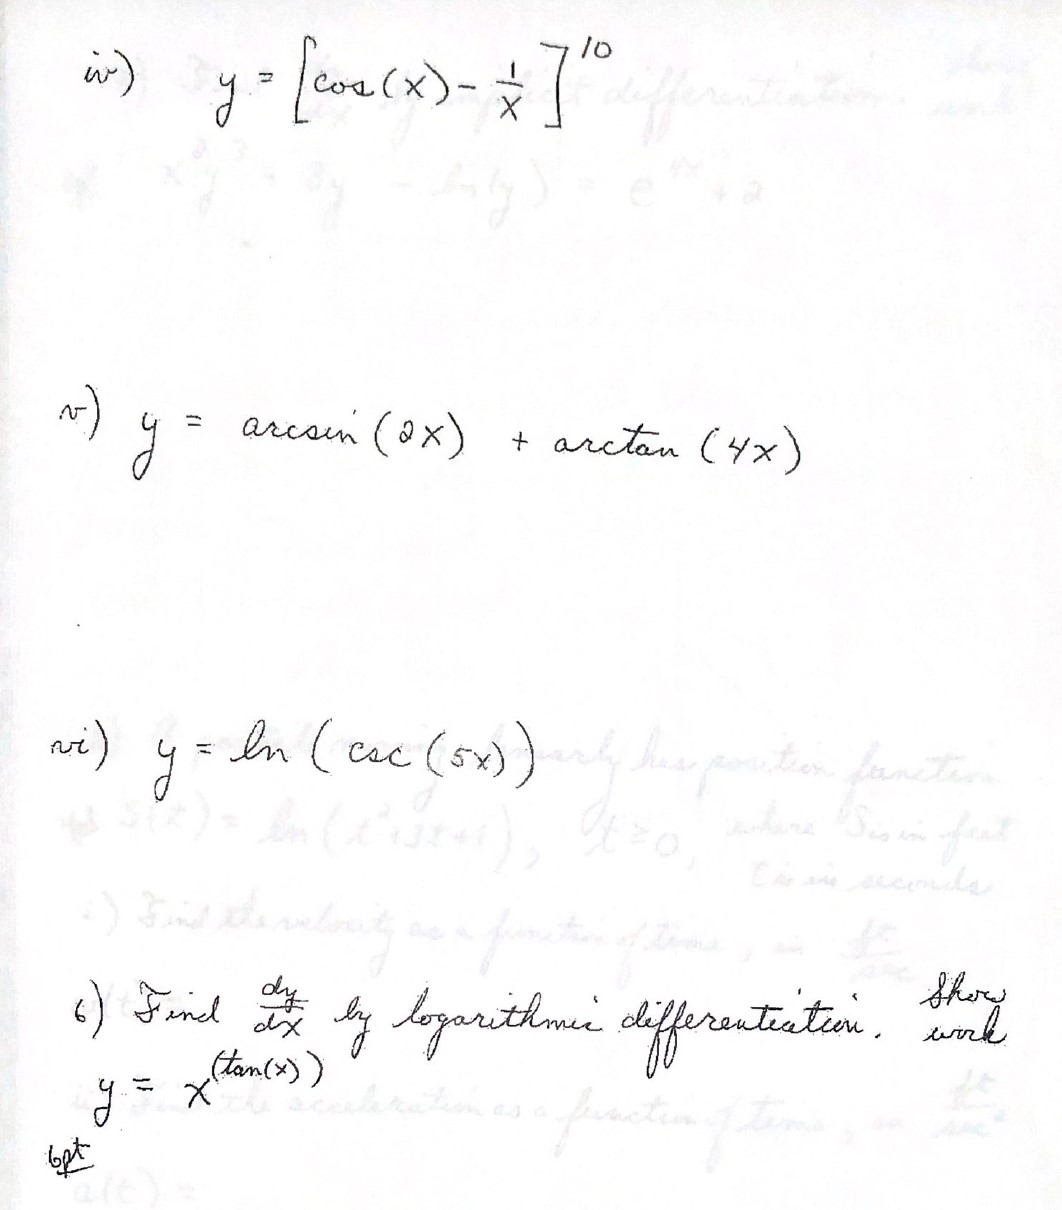 iv) y = [cos(x) - 1/x]^10
v) y = arcsin(2x) + arctan(4x)
vi) y = ln(csc(5x))
6) Find dy/dx by logarithmic differentiation. Show work
y = x^(tan(x))
6pt